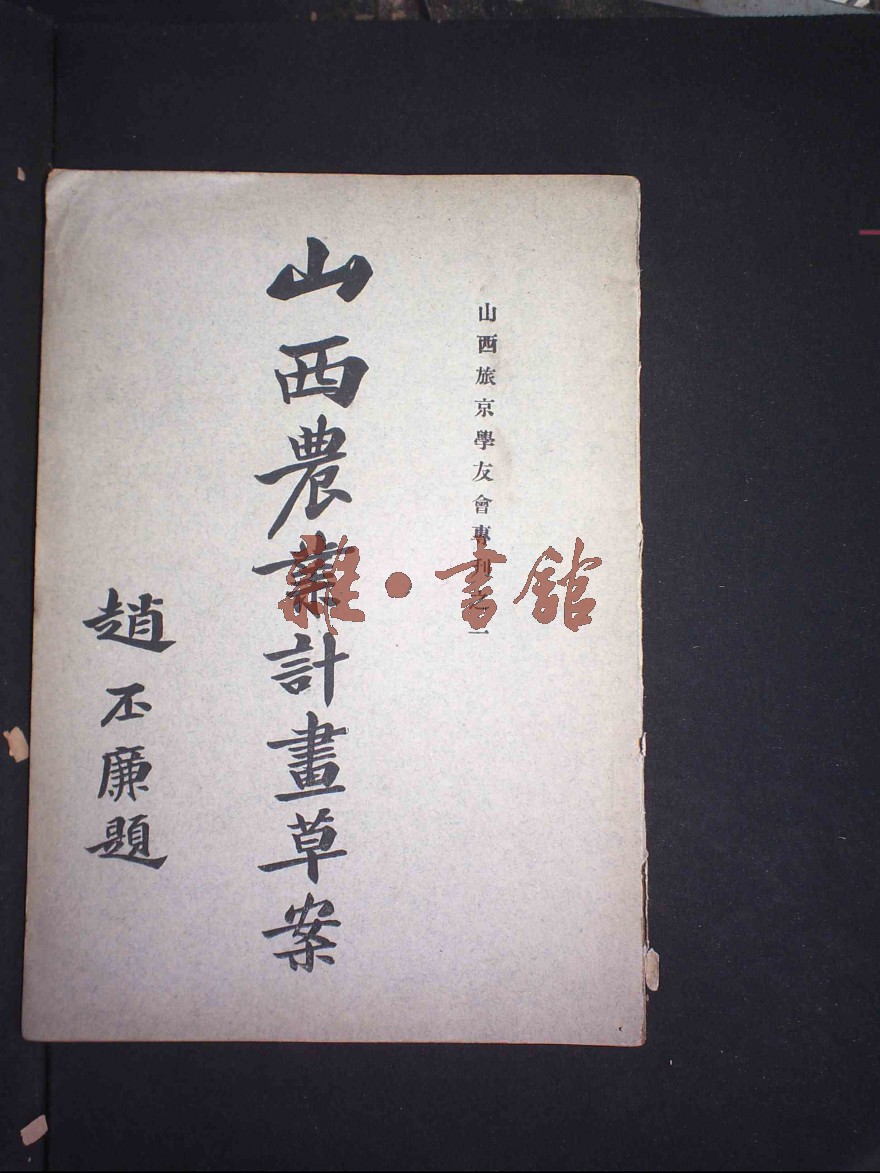 山西旅京學友會專刊之一
山西農業計畫草案
趙丕廉題
雜·書館